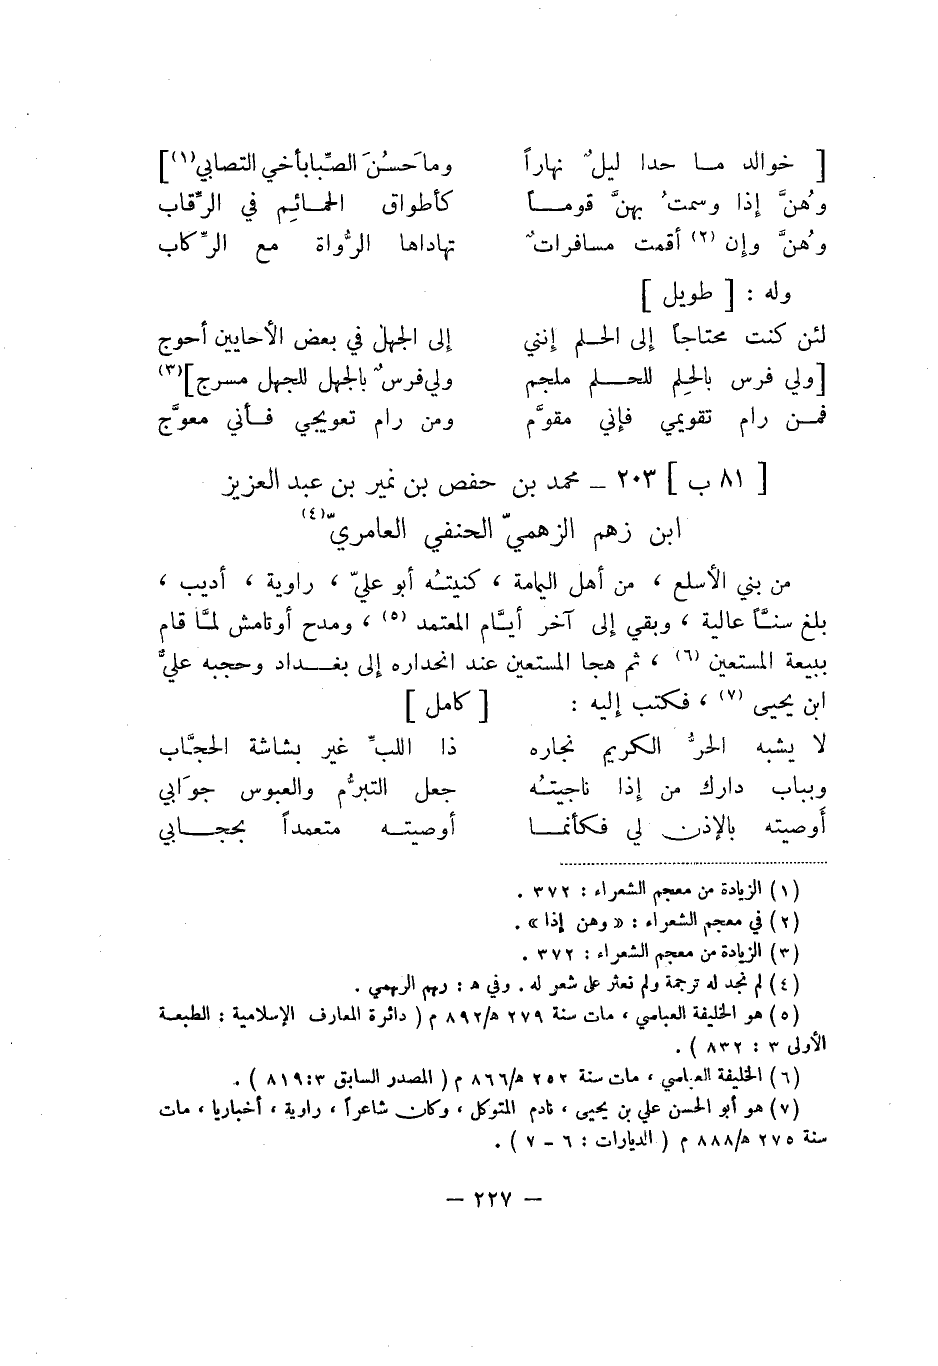 [ خوالد مـا حدا ليلٌ نهاراً وما حَسُنَ الصِّبا بأخي التصابي(١)]
وهُنَّ إذا وسمتُ بهنَّ قومـــاً كأطواق الحمـائِم في الرِّقاب
وهُنَّ وإن (٢) أقمت مسافراتٌ تهاداها الرُّواة مع الرِّكاب
وله : [ طويل ]
لئن كنت محتاجاً إلى الحـلم إنني إلى الجهل في بعض الأحايين أحوج
[ولي فرس بالحلم للحـــلم ملجم ولي فرسٌ بالجهل للجهل مسرج](٣)
فمـن رام تقويمي فإني مقوَّم ومن رام تعويجي فـأني معوَّج
[ ٨١ ب ] ٢٠٣ ــ محمد بن حفص بن نمير بن عبد العزيز
ابن زهم الزهميّ الحنفي العامريّ(٤)
من بني الأسلع ، من أهل اليمامة ، كنيتـُه أبو عليّ ، راوية ، أديب ،
بلغ سنـَّاً عالية ، وبقي إلى آخر أيـَّام المعتمد (٥) ، ومدح أوتامش لمـَّا قام
ببيعة المستعين (٦) ، ثم هجا المستعين عند انحداره إلى بغـــداد وحجبه عليُّ
ابن يحيى (٧) ، فكتب إليه : [ كامل ]
لا يشبه الحرُّ الكريم نجاره ذا اللبِّ غير بشاشة الحجـَّاب
وبباب دارك من إذا ناجيتـُه جعل التبرُّم والعبوس جوَابي
أَوصيته بالإذن لي فكأنمـــا أوصيتــه متعمداً بحجــابي
(١) الزيادة من معجم الشعراء : ٣٧٢ .
(٢) في معجم الشعراء : « وهن إذا » .
(٣) الزيادة من معجم الشعراء : ٣٧٢ .
(٤) لم نجد له ترجمة ولم نعثر على شعر له . وفي ه : رهم الرهمي .
(٥) هو الخليفة العباسي ، مات سنة ٢٧٩ ه/٨٩٢ م ( دائرة المعارف الإسلامية : الطبعــة
الأولى ٣ : ٨٣٢ ) .
(٦) الخليفة العباسي ، مات سنة ٢٥٢ ه/٨٦٦ م ( المصدر السابق ٣:٨١٩ ) .
(٧) هو أبو الحسن علي بن يحيى ، نادم المتوكل ، وكان شاعراً ، راوية ، أخباريا ، مات
سنة ٢٧٥ ه/٨٨٨ م ( الديارات : ٦ ــ ٧ ) .
— ٢٢٧ —